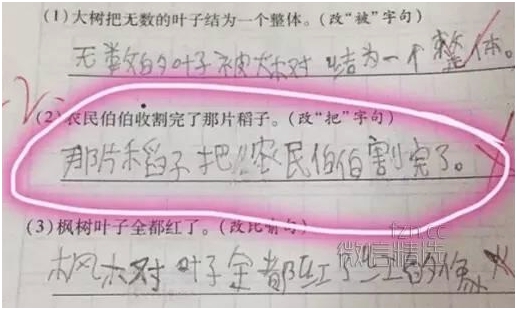 (1)大树把无数的叶子结为一个整体。(改“被”字句)
无数的叶子被大树结为一个整体。
-2
(2)农民伯伯收割完了那片稻子。(改“把”字句)
那片稻子把农民伯伯割完了。
(3)枫树叶子全都红了。(改比喻句)
枫树叶子全都红了红的像
fzn.cc
微信精选